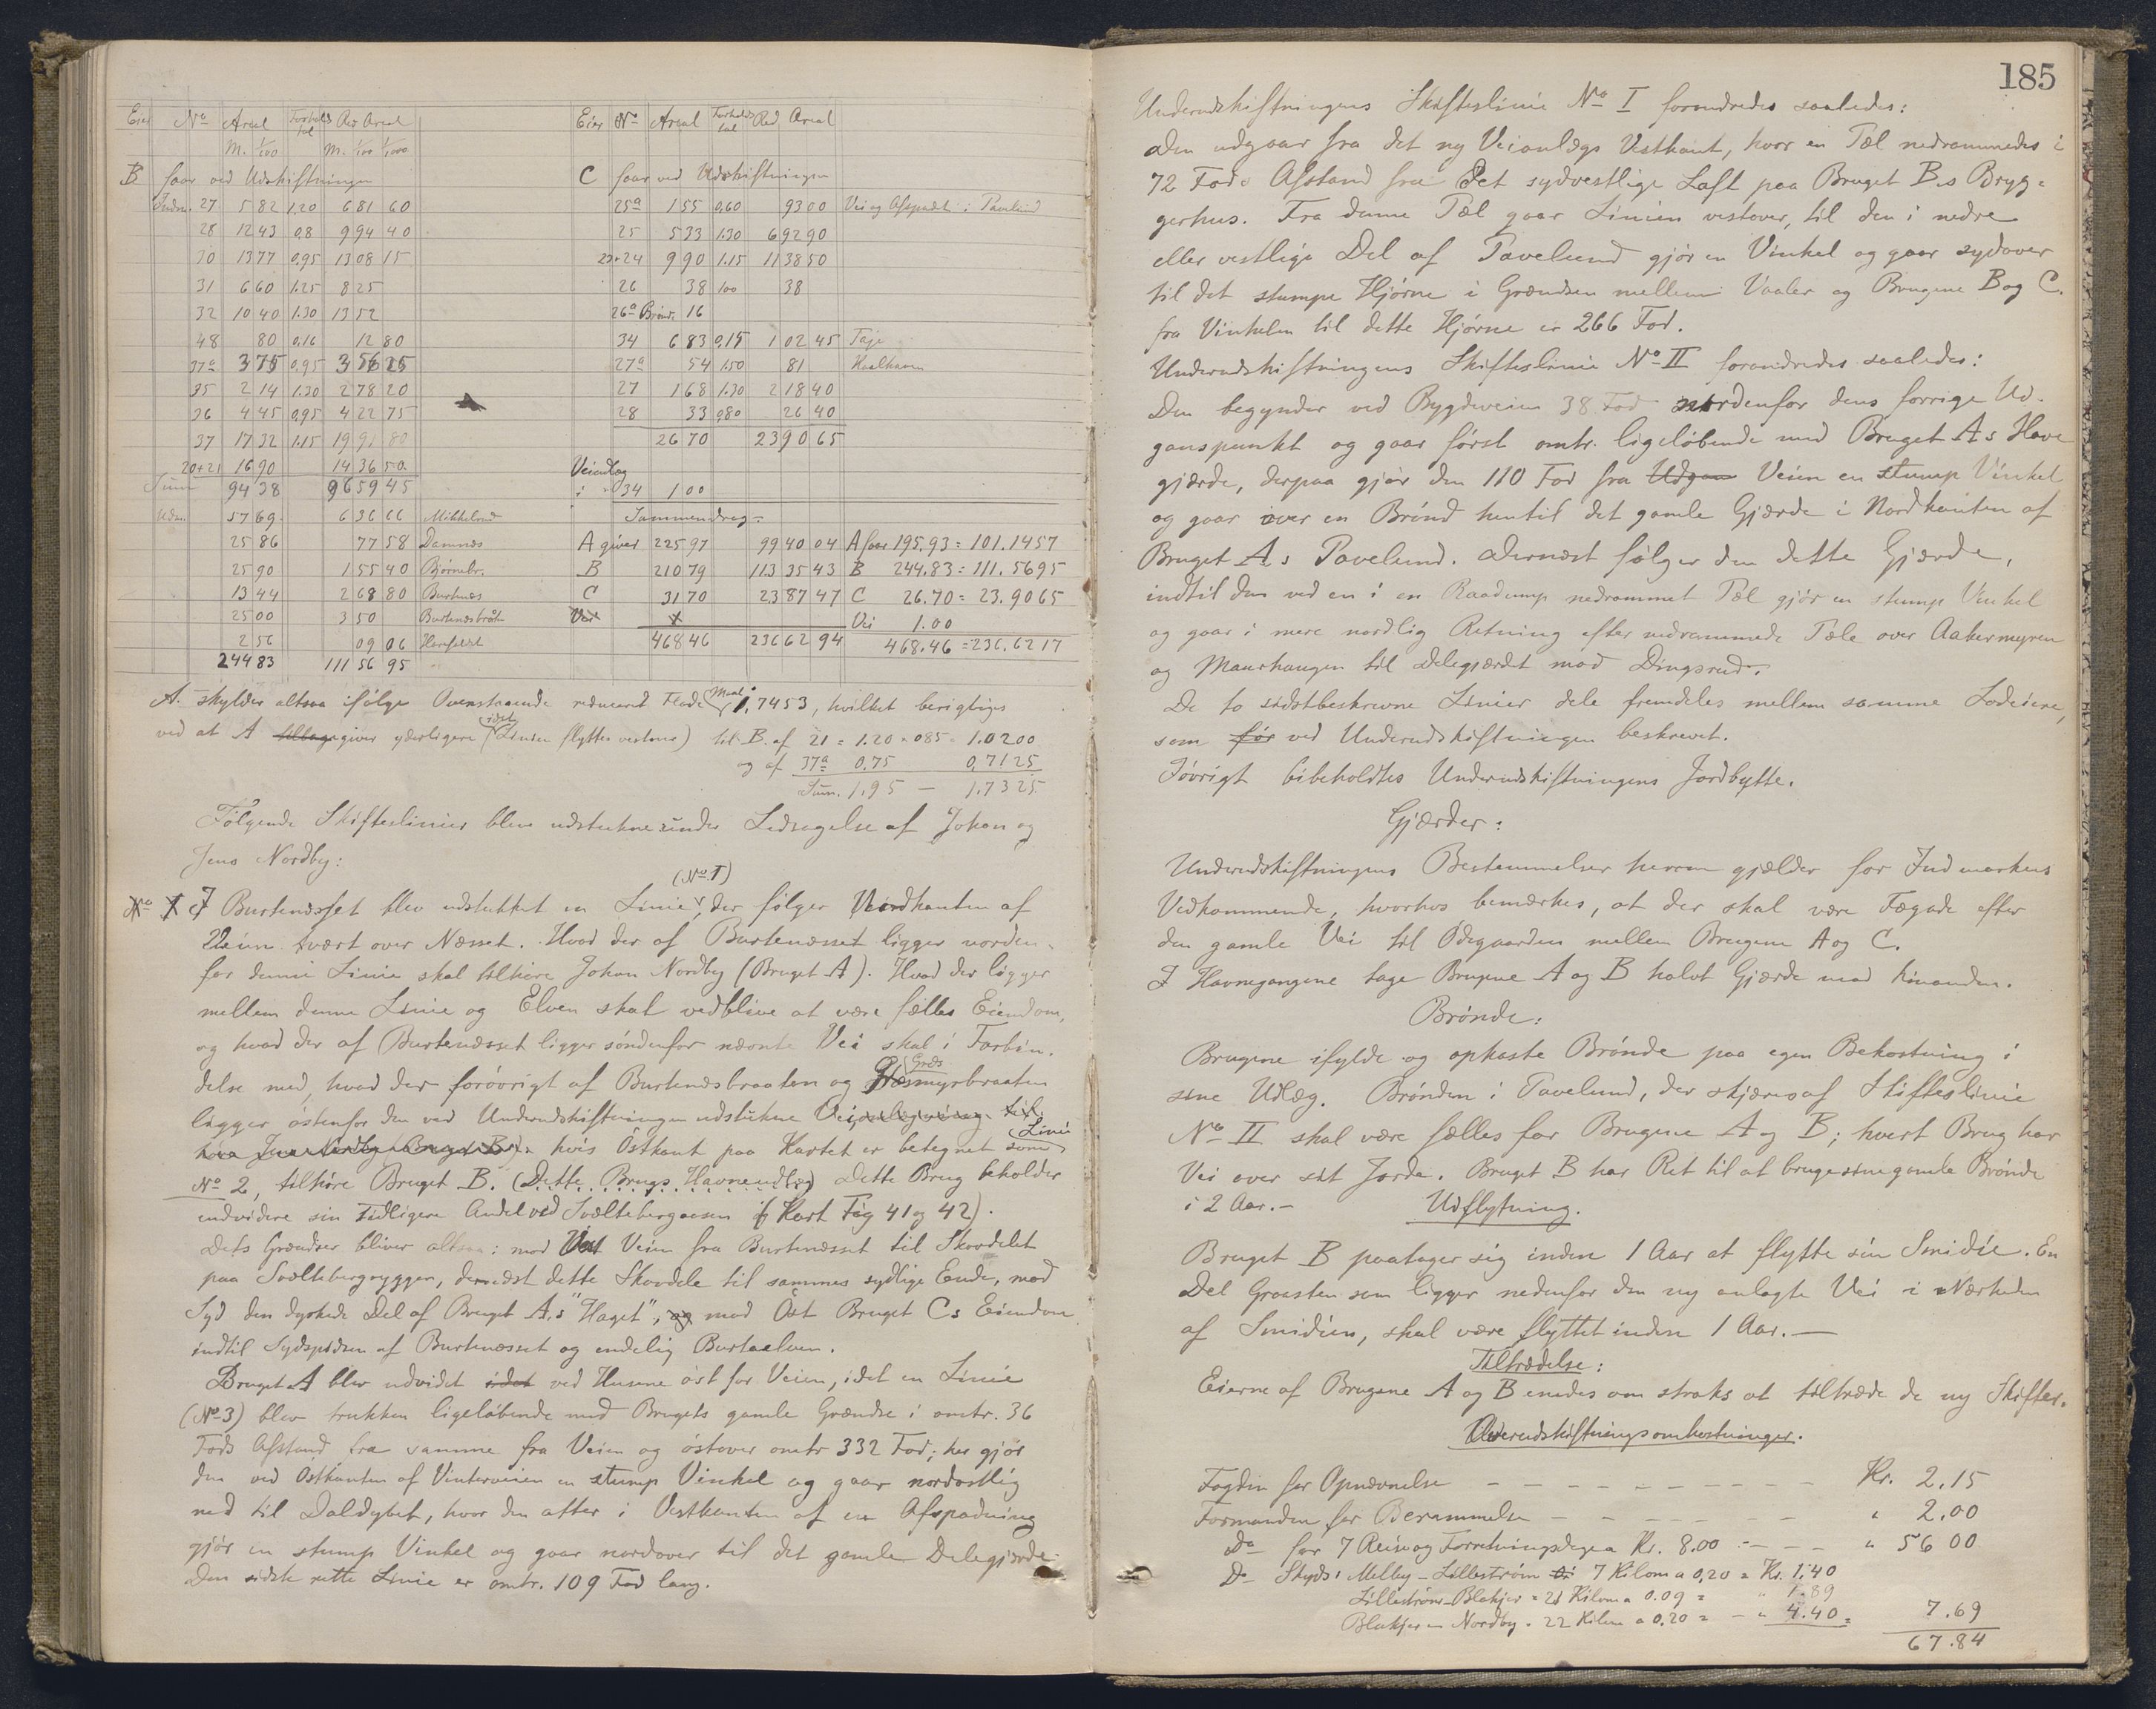 Eier No Areal Forholds tal Red Areal
M. 1/100 M. 1/100 1/1000
B faar ved Udskiftningen
Indm. 27 5 82 1.20 6 81 60
28 12 43 0,8 9 94 40
30 13 77 0,95 13 08 15
31 6 60 1.25 8 25
32 10 40 1.30 13 52
48 80 0,16 12 80
37a 3 75 0,95 3 56 25
35 2 14 1.30 2 78 20
36 4 45 0,95 4 22 75
37 17 32 1.15 19 91 80
20+21 16 90 14 36 50
Sum 94 38 96 59 45
Udm. 57 69 6 36 66 Mikkelrud
25 86 77 58 Damnæs
25 90 1 55 40 Bjørnebr.
13 44 2 68 80 Burtnæs
25 00 3 50 Burtnæsbråt
2 56 09 06
244 83 111 56 95
Eier No Areal Forholds tal Red Areal
C faar ved Udskiftningen
25a 1 55 0,60 93 00 Vei og Afspadt i Pavelund
25 5 33 1.30 6 92 90
23+24 9 90 1.15 11 38 50
26 38 1.00 38
26a Brønd. 16
34 6 83 0,15 1 02 45 Tajе
27a 54 1.50 81 Kaalhaven
27 1 68 1.30 2 18 40
28 33 0,80 26 40
26 70 23 90 65
Veiudlæg
i 34 1 00
Sammendrag:
A giver 225 97 99 40 04 A faar 195.93 = 101.1457
B 210 79 113 35 43 B 244.83 = 111.5695
C 31 70 23 87 47 C 26.70 = 23.9065
Vei Vei 1.00
468 46 236 62 94 468.46 = 236.6217
A. skylder altsaa ifølge Ovenstaaende reduceret Flade Maal 1,7453, hvilket berigtiges
ved at A tillige giver yderligere (idet Linien flyttes vestover) til B. af 21 = 1.20 × 085 = 1.0200
og af 37a 0.75 0,7125
Sum. 1.95 — 1.7325
Følgende Skifteslinier bleve udstukne under Ledsagelse af Johan og
Jens Nordby:
No 1 I Burtenæsset blev udstukket en Linie (No 1), der følger Nordkanten af
Veien tvært over Næsset. Hvad der af Burtenæsset ligger norden-
for denne Linie skal tilhøre Johan Nordby (Bruget A). Hvad der ligger
mellem denne Linie og Elven skal vedblive at være fælles Eiendom,
og hvad der af Burtenæsset ligger søndenfor nævnte Vei skal i Forbin-
delse med, hvad der forøvrigt af Burtenæsbraaten og Græsmyrbraaten
ligger østenfor den ved Underudskiftningen udstukne Veiudlægning til
hos Jens Nordby Bruget B. hvis Østkant paa Kartet er betegnet som Linie
No 2, tilhøre Bruget B. (Dette Brugs Havneudlæg) Dette Brug beholder
endvidere sin tidligere Andel ved Svæltebergaasen (cf Kart Fig 41 og 42).
Dets Grændser bliver altsaa: mod Vest Veien fra Burtenæsset til Skovdelet
paa Svæltebergryggen, dernæst dette Skovdele til sammes sydlige Ende, mod
Syd den dyrkede Del af Bruget As "Haget", og mod Øst Bruget Cs Eiendom
indtil Sydspidsen af Burtenæsset og endelig Burtaelven.
Bruget A blev udvidet idet ved Husene øst for Veien, idet en Linie
(No 3) blev trukken ligeløbende med Brugets gamle Grændse i omtr. 36
Fods Afstand fra samme fra Veien og østover omtr 332 Fod; her gjør
den ved Østkanten af Vinterveien en stump Vinkel og gaar nordostlig
ned til Daldybet, hvor den atter i Vestkanten af en Afspadning
gjør en stump Vinkel og gaar nordover til det gamle Delegjærde.
Den sidste rette Linie er omtr. 109 Fod lang.
185
Underudskiftningens Skifteslinie No I forandredes saaledes:
Den udgaar fra det ny Veianlægs Vestkant, hvor en Pæl nedrammedes i
72 Fods Afstand fra det sydvestlige Laft paa Bruget B.s Bryg-
gerhus. Fra denne Pæl gaar Linien vestover, til den i nedre
eller vestlige Del af Pavelund gjør en Vinkel og gaar sydover
til det stumpe Hjørne i Grændsen mellem Vaaler og Brugene B og C.
fra Vinkelen til dette Hjørne er 266 Fod.
Underudskiftningens Skifteslinie No II forandredes saaledes:
Den begynder ved Bygdeveien 38 Fod nordenfor dens forrige Ud-
ganspunkt og gaar først omtr. ligeløbende med Bruget As Have
gjærde, derpaa gjør den 110 Fod fra Udgan Veien en stump Vinkel
og gaar over en Brønd hentil det gamle Gjærde i Nordkanten af
Bruget As Pavelund. Dernæst følger den dette Gjærde,
indtil den ved en i en Raadump nedrammet Pæl gjør en stump Vinkel
og gaar i mere nordlig Retning efter nedrammede Pæle over Aakermyren
og Maurhaugen til Delegjærdet mod Dingsrud.
De to sidstbeskrevne Linier dele fremdeles mellem samme Lodeiere,
som før ved Underudskiftningen beskrevet.
Iøvrigt bibeholdtes Underudskiftningens Jordbytte.
Gjærder:
Underudskiftningens Bestemmelser herom gjælder for Indmarkens
Vedkommende, hvorhos bemærkes, at der skal være Fægade efter
den gamle Vei til Ødegaarden mellem Brugene A og C.
I Havnegangene tage Brugene A og B halvt Gjærde mod hinanden.
Brønde:
Brugene ifylde og opkaste Brønde paa egen Bekostning i
sine Udlæg. Brønden i Pavelund, der skjæres af Skifteslinie
No II skal være fælles for Brugene A og B; hvert Brug har
Vei over sit Jorde. Bruget B har Ret til at bruge sine gamle Brønde
i 2 Aar.—
Udflytning.
Bruget B paatager sig inden 1 Aar at flytte sin Smidie. En
Del Graasten som ligger nedenfor den ny anlagte Vei i Nærheden
af Smidien, skal være flyttet inden 1 Aar.—
Tiltrædelse:
Eierne af Brugene A og B enedes om straks at tiltræde de ny Skifter.
Overudskiftningsomkostninger.
Fogden for Opnævnelse — — — Kr. 2.15
Formanden for Berammelse — — — " 2.00
Do for 7 Reise og Forretningsdage a Kr. 8.00 — — " 56 00
Do Skyds: Melby - Lillestrøm 7 Kilom a 0,20 = Kr. 1.40
Lillestrøm - Blakjer = 21 Kilom a 0.09 = " 1.89
Blakjer - Nordby = 22 Kilom a 0.20 = — " 4.40 = 7.69
67.84